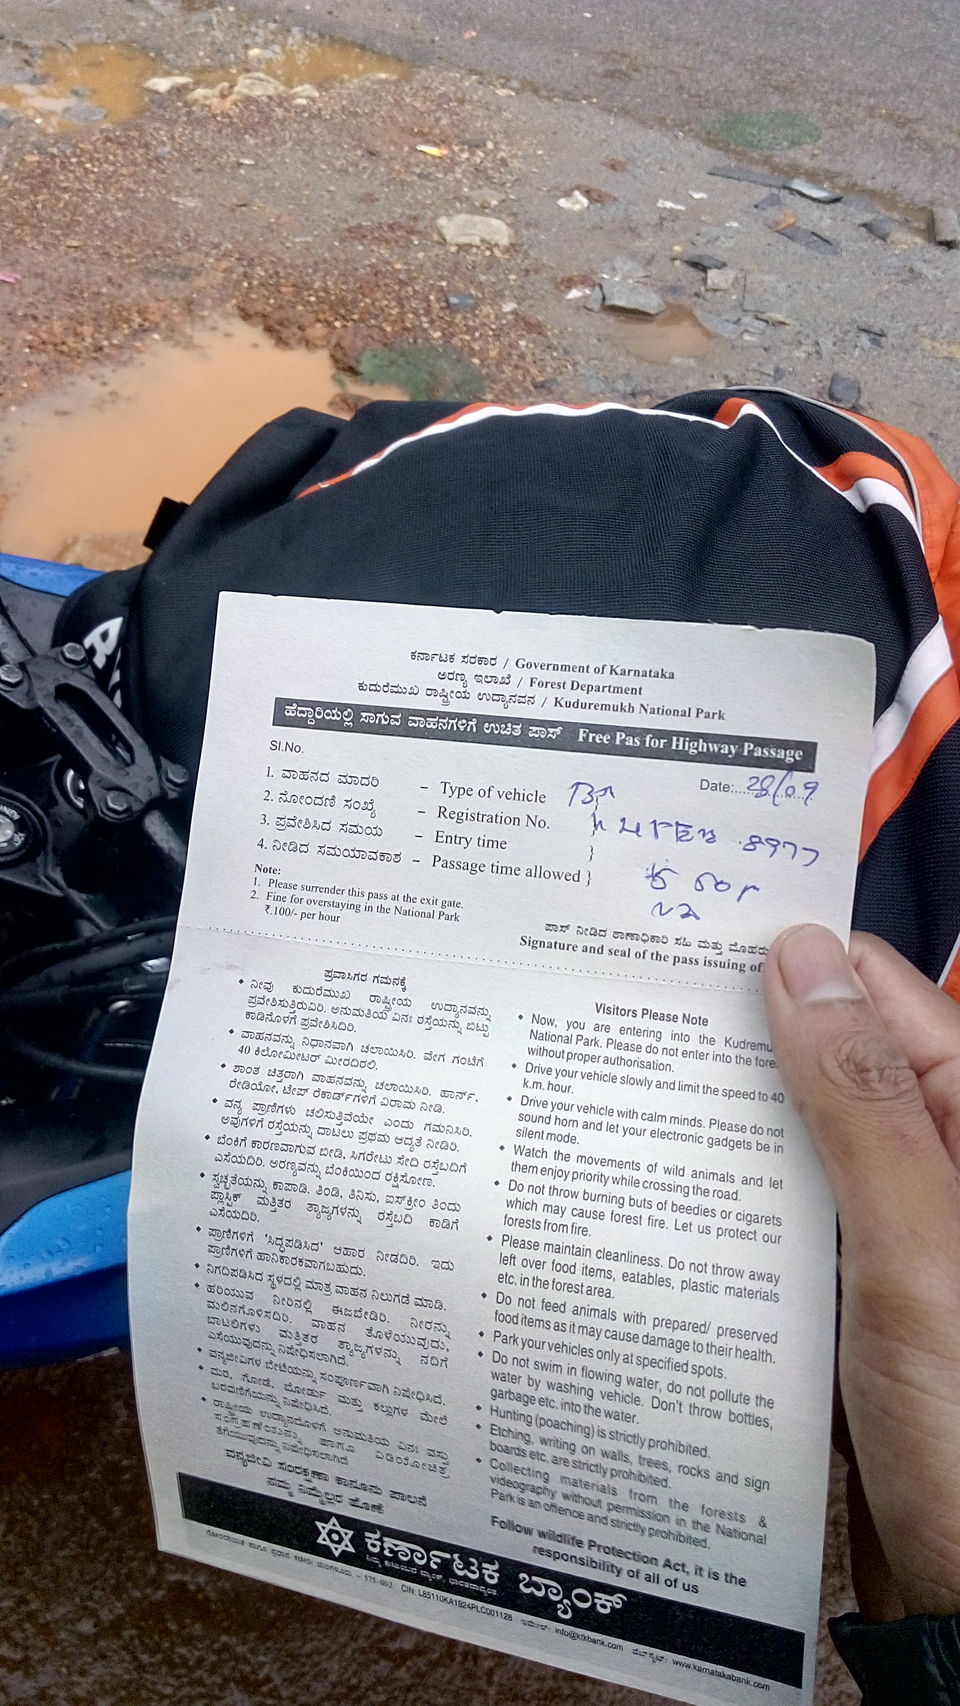 ಕರ್ನಾಟಕ ಸರಕಾರ / Government of Karnataka
ಅರಣ್ಯ ಇಲಾಖೆ / Forest Department
ಕುದುರೆಮುಖ ರಾಷ್ಟ್ರೀಯ ಉದ್ಯಾನವನ / Kuduremukh National Park
ಹೆದ್ದಾರಿಯಲ್ಲಿ ಸಾಗುವ ವಾಹನಗಳಿಗೆ ಉಚಿತ ಪಾಸ್ Free Pas for Highway Passage
Sl.No.
Date:.....28/09
1. ವಾಹನದ ಮಾದರಿ – Type of vehicle
2. ನೋಂದಣಿ ಸಂಖ್ಯೆ – Registration No. 8977
3. ಪ್ರವೇಶಿಸಿದ ಸಮಯ – Entry time }
4. ನೀಡಿದ ಸಮಯಾವಕಾಶ – Passage time allowed }
Note:
1. Please surrender this pass at the exit gate.
2. Fine for overstaying in the National Park
₹.100/- per hour
ಪಾಸ್ ನೀಡಿದ ಠಾಣಾಧಿಕಾರಿ ಸಹಿ ಮತ್ತು ಮೊಹರು
Signature and seal of the pass issuing of
ಪ್ರವಾಸಿಗರ ಗಮನಕ್ಕೆ
• ನೀವು ಕುದುರೆಮುಖ ರಾಷ್ಟ್ರೀಯ ಉದ್ಯಾನವನ್ನು
ಪ್ರವೇಶಿಸುತ್ತಿರುವಿರಿ. ಅನುಮತಿಯ ವಿನಃ ರಸ್ತೆಯನ್ನು ಬಿಟ್ಟು
ಕಾಡಿನೊಳಗೆ ಪ್ರವೇಶಿಸಿದಿರಿ.
• ವಾಹನವನ್ನು ನಿಧಾನವಾಗಿ ಚಲಾಯಿಸಿರಿ. ವೇಗ ಗಂಟೆಗೆ
40 ಕಿಲೋಮೀಟರ್ ಮೀರದಿರಲಿ.
• ಶಾಂತ ಚಿತ್ತರಾಗಿ ವಾಹನವನ್ನು ಚಲಾಯಿಸಿರಿ. ಹಾರ್ನ್,
ರೇಡಿಯೋ, ಟೇಪ್ ರೆಕಾರ್ಡ್‌ಗಳಿಗೆ ವಿರಾಮ ನೀಡಿ.
• ವನ್ಯ ಪ್ರಾಣಿಗಳು ಚಲಿಸುತ್ತಿವೆಯೇ ಎಂದು ಗಮನಿಸಿರಿ.
ಅವುಗಳಿಗೆ ರಸ್ತೆಯನ್ನು ದಾಟಲು ಪ್ರಥಮ ಆದ್ಯತೆ ನೀಡಿರಿ.
• ಬೆಂಕಿಗೆ ಕಾರಣವಾಗುವ ಬೀಡಿ, ಸಿಗರೇಟು ಸೇದಿ ರಸ್ತೆಬದಿಗೆ
ಎಸೆಯದಿರಿ. ಅರಣ್ಯವನ್ನು ಬೆಂಕಿಯಿಂದ ರಕ್ಷಿಸೋಣ.
• ಸ್ವಚ್ಛತೆಯನ್ನು ಕಾಪಾಡಿ. ತಿಂಡಿ, ತಿನಿಸು, ಐಸ್‌ಕ್ರೀಂ ತಿಂದು
ಪ್ಲಾಸ್ಟಿಕ್ ಮತ್ತಿತರ ತ್ಯಾಜ್ಯಗಳನ್ನು ರಸ್ತೆಬದಿ ಕಾಡಿಗೆ
ಎಸೆಯದಿರಿ.
• ಪ್ರಾಣಿಗಳಿಗೆ 'ಸಿದ್ಧಪಡಿಸಿದ' ಆಹಾರ ನೀಡದಿರಿ. ಇದು
ಪ್ರಾಣಿಗಳಿಗೆ ಹಾನಿಕಾರಕವಾಗಬಹುದು.
• ನಿಗದಿಪಡಿಸಿದ ಸ್ಥಳದಲ್ಲಿ ಮಾತ್ರ ವಾಹನ ನಿಲುಗಡೆ ಮಾಡಿ.
• ಹರಿಯುವ ನೀರಿನಲ್ಲಿ ಈಜಬೇಡಿರಿ. ನೀರನ್ನು
ಮಲಿನಗೊಳಿಸದಿರಿ. ವಾಹನ ತೊಳೆಯುವುದು,
ಬಾಟಲಿಗಳು ಮತ್ತಿತರ ತ್ಯಾಜ್ಯಗಳನ್ನು ನದಿಗೆ
ಎಸೆಯುವುದನ್ನು ನಿಷೇಧಿಸಲಾಗಿದೆ.
• ವನ್ಯಜೀವಿಗಳ ಬೇಟೆಯನ್ನು ಸಂಪೂರ್ಣವಾಗಿ ನಿಷೇಧಿಸಿದೆ.
• ಮರ, ಗೋಡೆ, ಬೋರ್ಡು ಮತ್ತು ಕಲ್ಲುಗಳ ಮೇಲೆ
ಬರವಣಿಗೆಯನ್ನು ನಿಷೇಧಿಸಿದೆ.
• ರಾಷ್ಟ್ರೀಯ ಉದ್ಯಾನದೊಳಗೆ ಅನುಮತಿಯ ವಿನಃ ವಸ್ತು
ಹಾಗೂ ವಿಡಿಯೋಚಿತ್ರ
ತೆಗೆಯುವುದನ್ನು ನಿಷೇಧಿಸಲಾಗಿದೆ
ವನ್ಯಜೀವಿ ಸಂರಕ್ಷಣಾ ಕಾನೂನು ಪಾಲನೆ
ನಮ್ಮ ನಿಮ್ಮೆಲ್ಲರ ಹೊಣೆ
Visitors Please Note
• Now, you are entering into the Kudremu
National Park. Please do not enter into the fore
without proper authorisation.
• Drive your vehicle slowly and limit the speed to 40
k.m. hour.
• Drive your vehicle with calm minds. Please do not
sound horn and let your electronic gadgets be in
silent mode.
• Watch the movements of wild animals and let
them enjoy priority while crossing the road.
• Do not throw burning buts of beedies or cigarets
which may cause forest fire. Let us protect our
forests from fire.
• Please maintain cleanliness. Do not throw away
left over food items, eatables, plastic materials
etc. in the forest area.
• Do not feed animals with prepared/ preserved
food items as it may cause damage to their health.
• Park your vehicles only at specified spots.
• Do not swim in flowing water, do not pollute the
water by washing vehicle. Don't throw bottles,
garbage etc. into the water.
• Hunting (poaching) is strictly prohibited.
• Etching, writing on walls, trees, rocks and sign
boards etc. are strictly prohibited.
• Collecting materials from the forests &
videography without permission in the National
Park is an offence and strictly prohibited.
Follow wildlife Protection Act, it is the
responsibility of all of us
ಕರ್ಣಾಟಕ ಬ್ಯಾಂಕ್
ನಿಮ್ಮ ಕುಟುಂಬದ ಬ್ಯಾಂಕ್, ಭಾರತದಾದ್ಯಂತ.
ನೋಂದಾಯಿತ ಹಾಗೂ ಪ್ರಧಾನ ಕಚೇರಿ: ಮಂಗಳೂರು - 575 002 CIN: L85110KA1924PLC001128 ಇಮೇಲ್: info@ktkbank.com ವೆಬ್‌ಸೈಟ್: www.karnatakabank.com